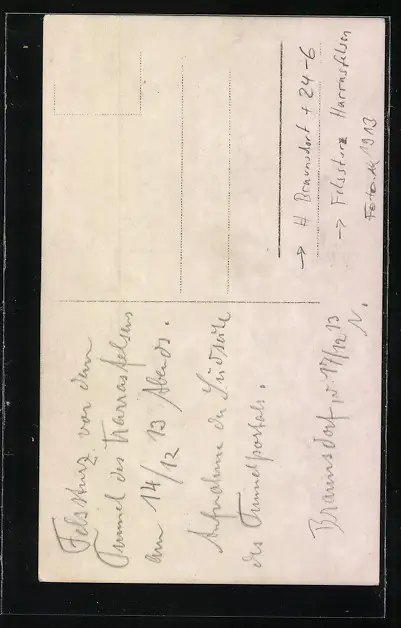 Felssturz vor dem
Tunnel des Harrasfelsens
am 14/12 13 Abends.
Aufnahme der Südseite
des Tunnelportals.
Braunsdorf, d. 17/12 13
N.
→ H Braunsdorf + 24-6
→ Felssturz Harrasfelsen
1913